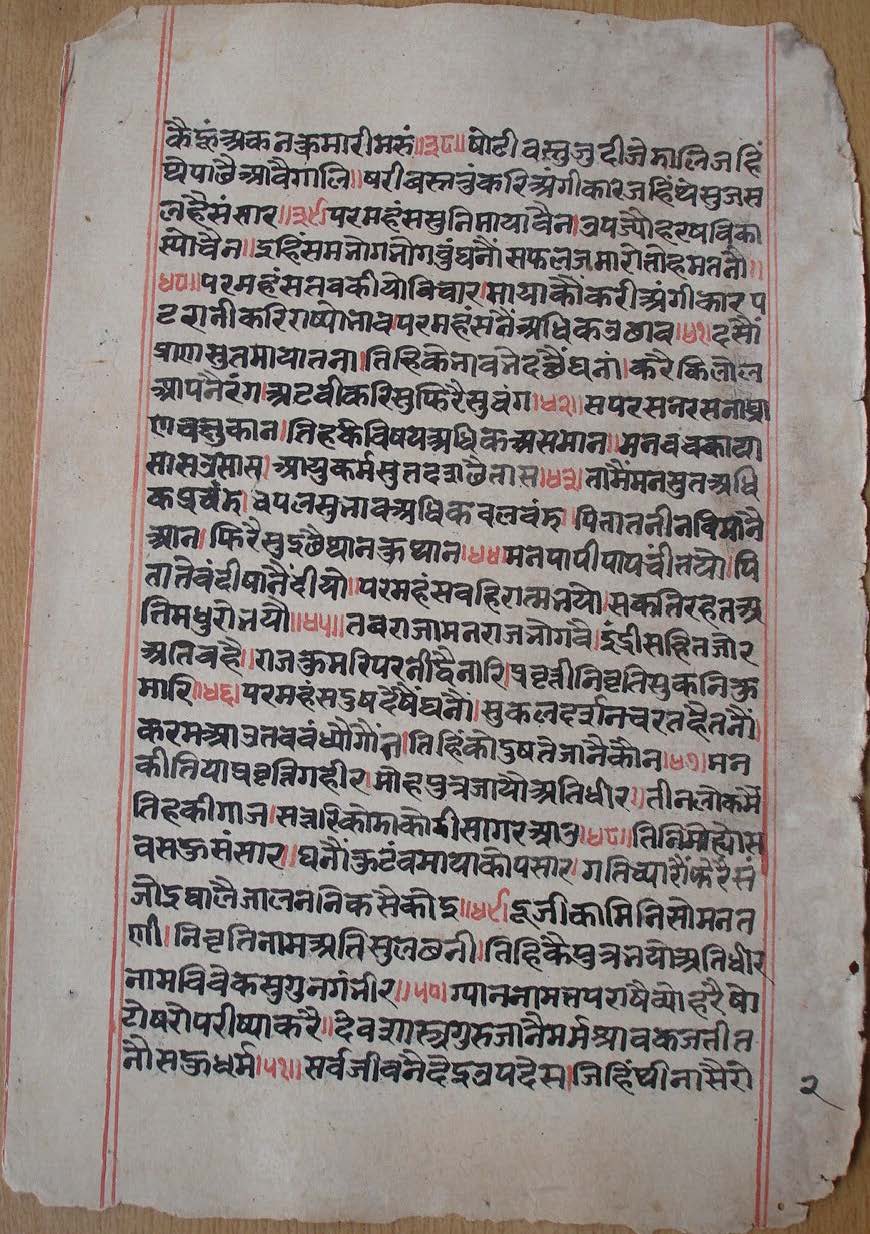 कै हुं अकन कुमारी मसं॥३८॥ षोटी वस्तु जु दीजे मालि जहिं
थे पाछै आवै गालि॥ षरी वस्त जुं करि अंगीकार जहिं थे सुजस
लहै संसार॥३९॥ परमहंस सुनि माया वैन। उपज्यौ हरष विका
स्यो नैन॥ इहिं सम जोग जोग वुं घनौं सफल ज मारो तो हम तनौ॥
४०॥ परमहंस तव कीयो विचार। माया कौं करी अंगीकार प
टरानी करि राष्यो नाव। परमहंस नैं अधिक उछाव॥४१॥ दसौं
प्राण सुत माया तना। तिहि के नाव नेद छै घना। करै किलोल
आपनै रंग। अटवी करि सु फिरै सुवंग॥४२॥ सपरसन रसना घ्रा
ण चक्षु कान। तिह के विषय अधिक असमान॥ मन वच काया
सास उसास। आयु कर्म सुत दश छै तास॥४३॥ ता मैं मन सुत अधि
क प्रचंड। चपल सुनाव अधिक वलवंड। पिता तनी न वि मानै
आन। फिरै सु इछै थान कुथान॥४४॥ मन पापी पाप चींतयो। पि
ता ते वंदीषानै दीयो॥ परमहंस वहिरात्म नयो। सकति रहत अ
ति मधुरो नयौ॥४५॥ तव राजा मन राज नोगवै। इंद्री सहित जोर
अति वहै॥ राजकुमरि परनी द्वै नारि। प्रवृत्ती निवृति सुकनि कु
मारि॥४६॥ परमहंस दुष देषै घनौं। सुकल दर्शन चरत है तनौं।
करम आउत व वंध्यौ गौंन। तिहिं को दुष तै जानै कौन॥४७॥ मन
की तिया प्रवृत्ति गहीर। मोह पुत्र जायौ अति धीर॥ तीन लोक मैं
तिह की गाज। सत्तरि कोडाकोडी सागर आउ॥४८॥ तिनि मोह्यो स
व सहु संसार॥ घनौं कुटंव माया को पसार। गति च्यारौं फेरै सं
जोइ घालै जाल न निकसै कोइ॥४९॥ दूजी कामिनि सो मन त
णी। निवृति नाम अति सुलछनी। तिहि कै पुत्र नयो अति धीर
नाम विवेक सुगुन गंनीर॥५०॥ ग्यान नाम तप राषै व्योहरै षो
टो षरो परीष्या करै॥ देव शास्त्र गुरु जानै मर्म श्रावक जती त
नौ सहु धर्म॥५१॥ सर्व जीव नै दे उपदेस। जिहिं थी नासै रो
२